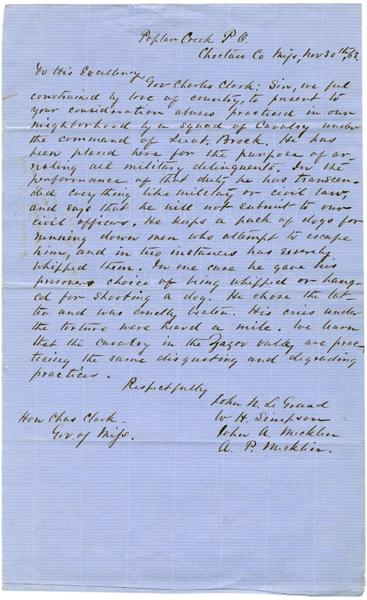 Poplar Creek P.O.
Choctaw Co Miss, Nov 30th, 63,
To His Excellency,
Gov Charles Clark; Sir, we feel
constrained by love of country, to present to
your consideration abuses practised in our
neighborhood by a squad of Cavalry under
the command of Lieut. Brock. He has
been placed here for the purpose of ar-
resting all military delinquents. In the
performance of that duty he has transcen-
ded everything like military or civil law,
and says that he will not submit to our
civil officers. He keeps a pack of dogs for
running down men who attempt to escape
him, and in two instances has severely
whipped them. In one case he gave his
prisoner choice of being whipped or hang-
ed for shooting a dog. He chose the lat-
ter and was cruelly beaten. His cries under
the torture were heard a mile. We learn
that the cavalry in the Yazoo valley are prac-
ticing the same disgusting and degrading
practices.
Respectfully
John N. Le Grand
W H. Simpson
John A. Micklin
A. P. Micklin.
Hon Chas Clark
Gov. of Miss.